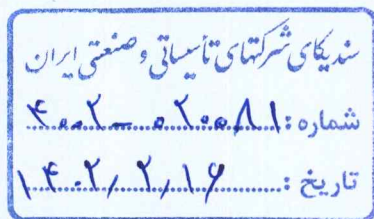 سندیکای شرکتهای تأسیساتی و صنعتی ایران
شماره : ۴۰۰۲ــ ۰۲۰۰۸۱
تاریخ : ۱۴۰۲٫۲٫۱۶